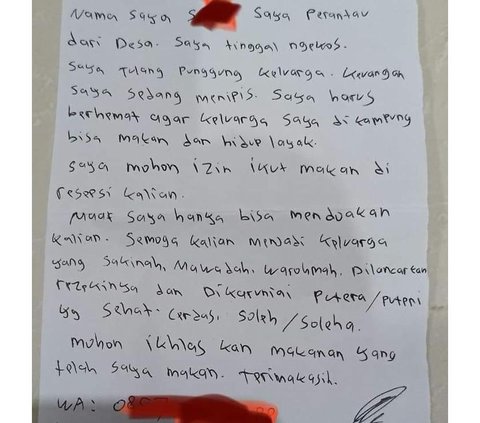 Nama saya S Saya Perantau
dari Desa. Saya tinggal ngekos.
Saya Tulang Punggung keluarga. keuangan
Saya sedang menipis. Saya harus
berhemat agar keluarga saya di kampung
bisa makan dan hidup layak.
Saya mohon izin ikut makan di
resepsi kalian.
Maaf saya hanya bisa mendoakan
kalian. Semoga kalian menjadi keluarga
yang sakinah, Mawadah, Warohmah. Dilancarkan
rezekinya dan Dikaruniai Putera/puteri
yg Sehat. Cerdas, Soleh/Soleha.
Mohon ikhlas kan makanan yang
telah saya makan. Terimakasih.
WA: